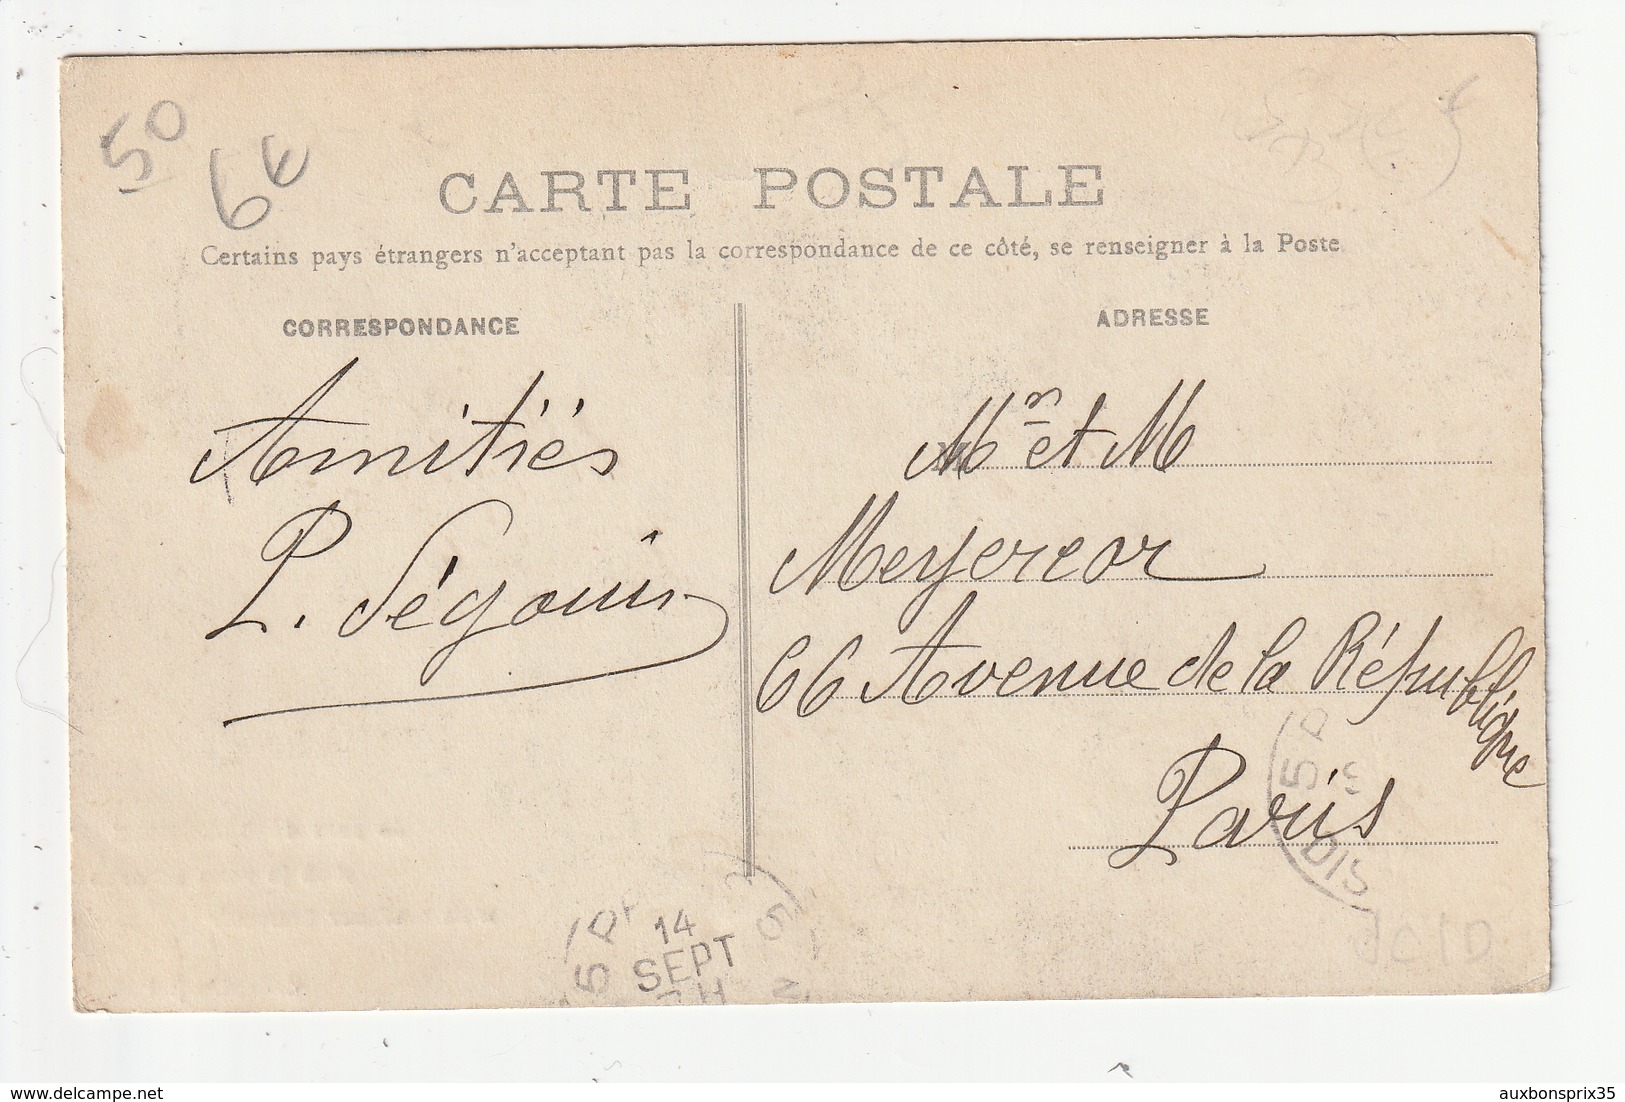 50
6€
CARTE POSTALE
Certains pays étrangers n'acceptant pas la correspondance de ce côté, se renseigner à la Poste
CORRESPONDANCE
Amitiés
P. Ségouin
ADRESSE
Mr et M
Meyereor
66 Avenue de la République
Paris
14
SEPT
delcampe.net
auxbonsprix35